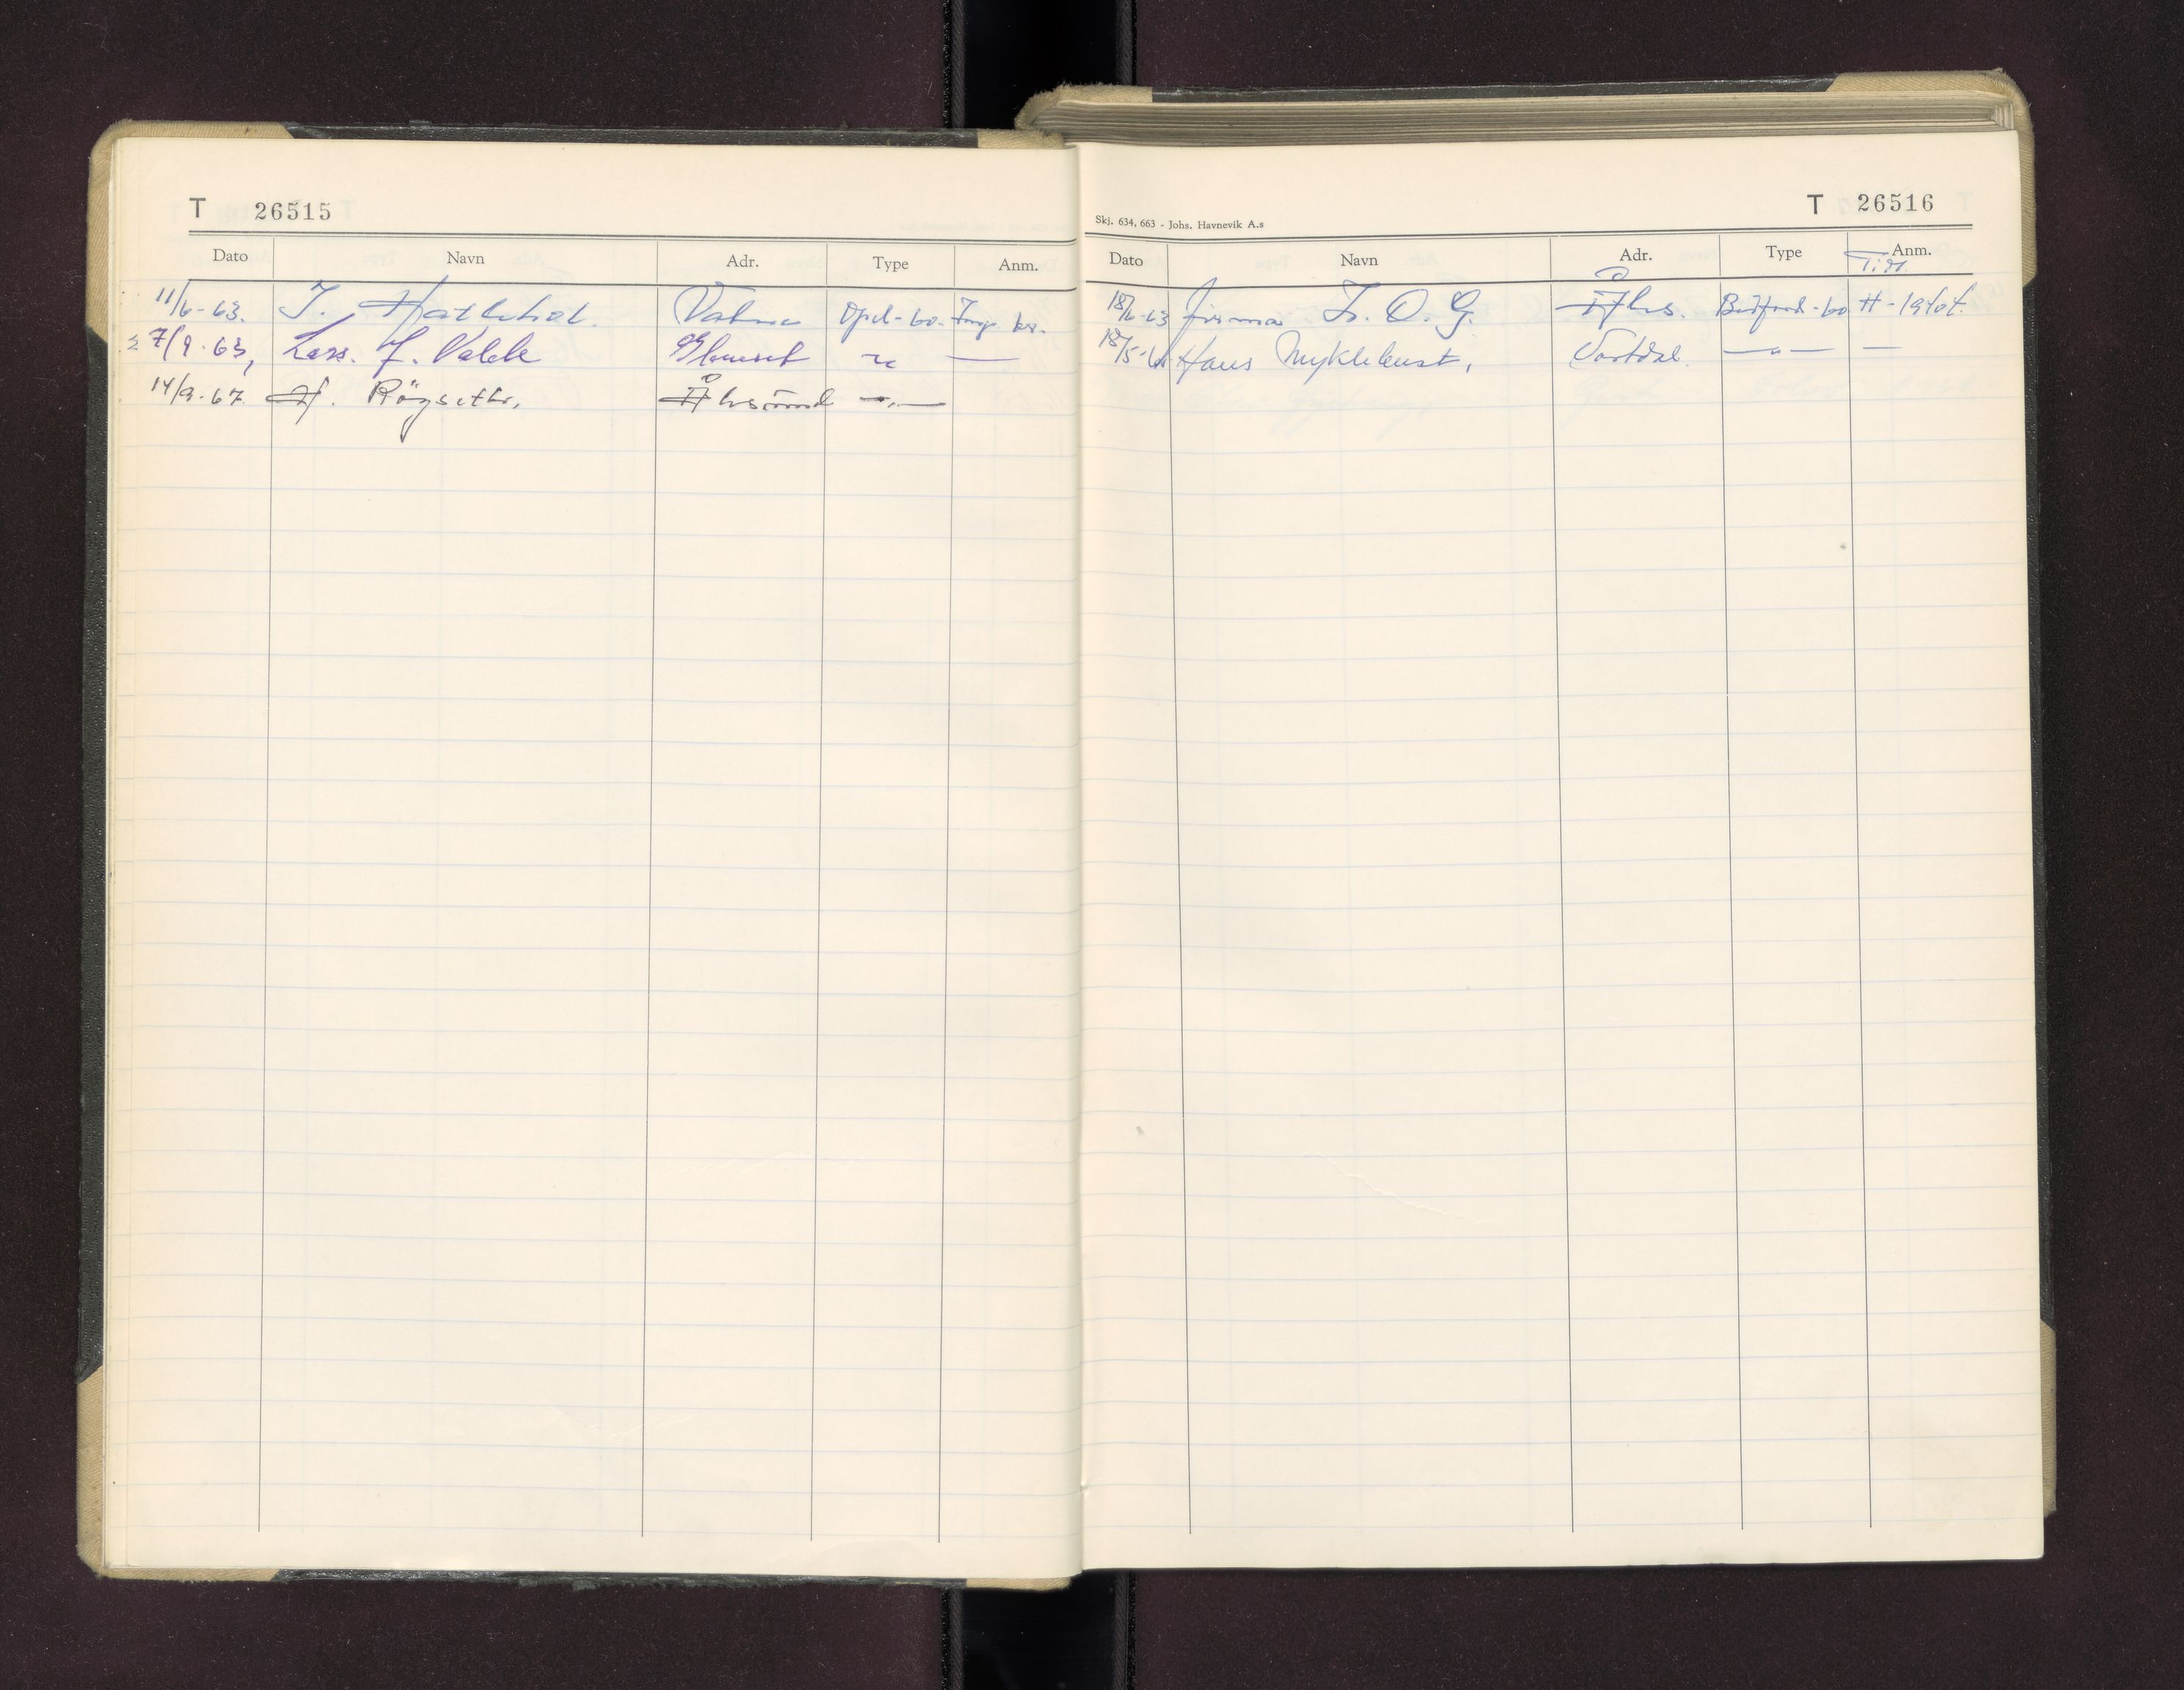 T 26515
Dato Navn Adr. Type Anm.
11/6-63. J. Hatlehol. Vatne Opel-60. Imp. kr.
27/9.63, Lars. J. Valde "
14/9.67. H. Røysethr, Ålesund —"—
T 26516
Skj. 634, 663 - Johs. Havnevik A.s
Dato Navn Adr. Type Anm.
Tidl.
18/6-63 Firma I. O. G. Åles. Bedford-60 H-19401.
18/5- Hans Myklebust, Vartdal. —"— —